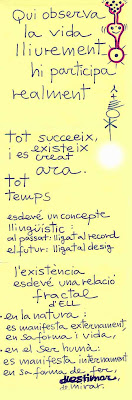 Qui observa
la vida
lliurement
hi participa
realment
tot succeeix,
i es existeix
creat
ara.
tot
temps
esdevé un concepte
llingüístic:
al passat: lligat al record
el futur: lligat al desig
l'existència
esdevé una relació
fractal
d'ELL
en la natura:
es manifesta externament
en sa forma i vida,
en el ser humà:
es manifesta internament
en sa forma de fer,
d'estimar
de mirar.